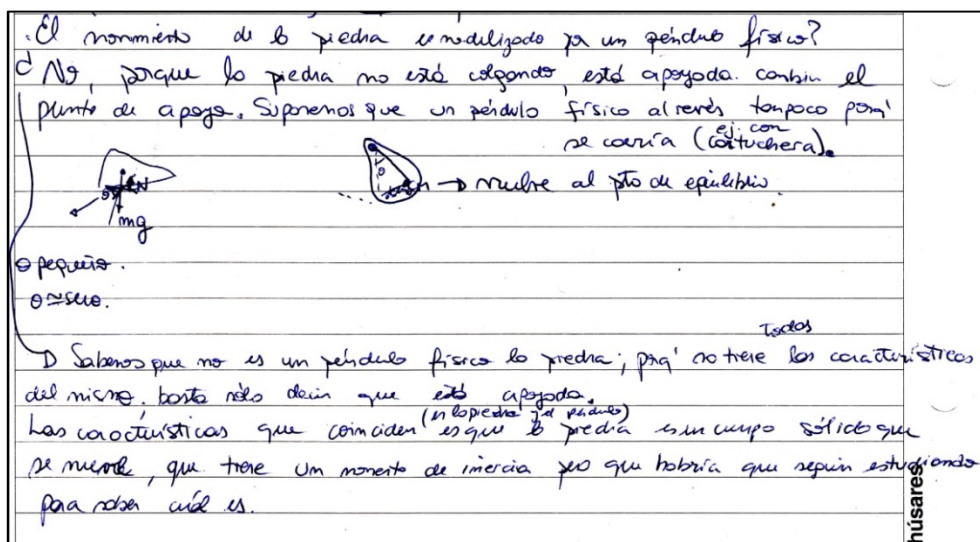 ¿El movimiento de la piedra es modelizado por un péndulo físico?
No, porque la piedra no está colgando está apoyada. cambia el
punto de apoyo. Suponemos que un péndulo físico al revés tampoco porq'
se caería (ej. con cartuchera).
N
mg
θ
→ vuelve al pto de equilibrio.
θ pequeño.
θ ≃ senθ.
Sabemos que no es un péndulo físico la piedra; porq' no tiene Todas las características
del mismo. basta sólo decir que está apoyada.
Las características que coinciden (en la piedra y el péndulo) es que la piedra es un cuerpo sólido que
se mueve, que tiene un momento de inercia pero que habría que seguir estudiando
para saber cuál es.
húsares